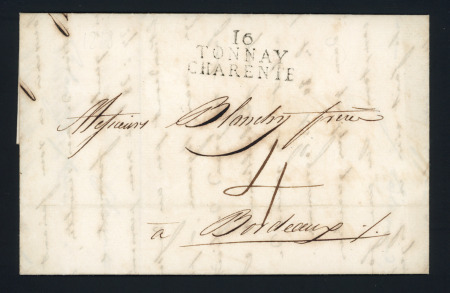 16
TONNAY
CHARENTE
Messieurs Blandin frères
4
à Bordeaux ./.